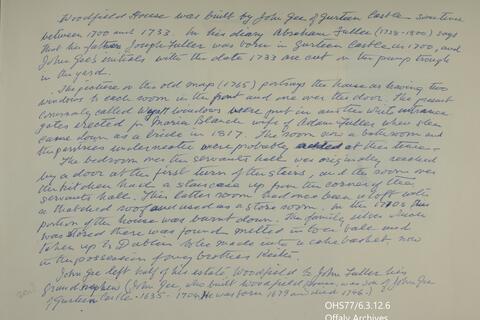 Woodfield House was built by John Gee of Gurteen Castle sometime
between 1700 and 1733. In his diary Abraham Fuller (1738-1800) says
that his father Joseph Fuller was born in Gurteen Castle in 1700, and
John Gee's initials with the date 1733 are cut in the pump trough
in the yard.
The picture on the old map (1765) portrays the house as having two
windows to each room in the front and one over the door. The present
commonly called Wyatt windows were put in and the white entrance
gates erected by Maria Blanch wife of Adam Fuller when she
came down as a bride in 1817. The room now a bathroom and
the pantries underneath were probably added at this time.
The bedroom over the servants hall was originally reached
by a door at the first turn of the stairs, and the room over
the kitchen had a staircase up from the corner of the
servants hall. This latter room had once been a loft with
a thatched roof and used as a store room. In the 1770s this
portion of the house was burnt down. The family silver which
was stored there was found melted into a ball and
taken up to Dublin to be made into a cake basket now
in the possession of my brothers
John Gee left half of his estate Woodfield to John Fuller his
grandnephew (John Gee, who built Woodfield House, was son of John Gee
of Gurteen Castle. 1635-1704. He was born 1679 and died 1746.)
OHS77/6.3.12.6
Offaly Archives